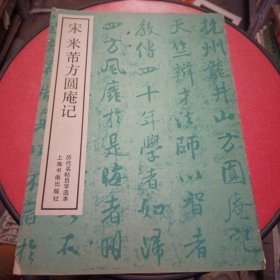 宋米芾方圆庵记
历代名帖自学选本
上海书画出版社
杭州龍井山方圓庵
天竺辯才法師以智者
教傳四十年學者如歸
四方風靡於是晦者明